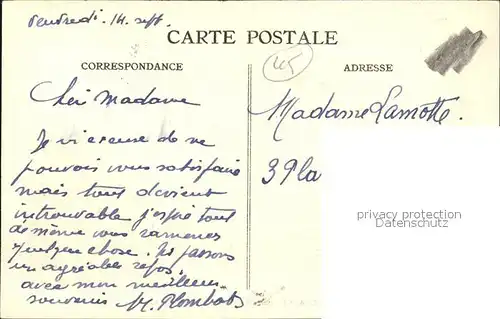 Vendredi. 14. sept.
CARTE POSTALE
45
CORRESPONDANCE
ADRESSE
Madame
Madame Lamotte.
Je de ne
pouvoir vous satisfaire
mais tout devient
introuvable j'espère tout
de même vous ramener
quelque chose. Ns passons
un agréable repos.
avec mon meilleur
souvenir M.
3 Pla
privacy protection
Datenschutz